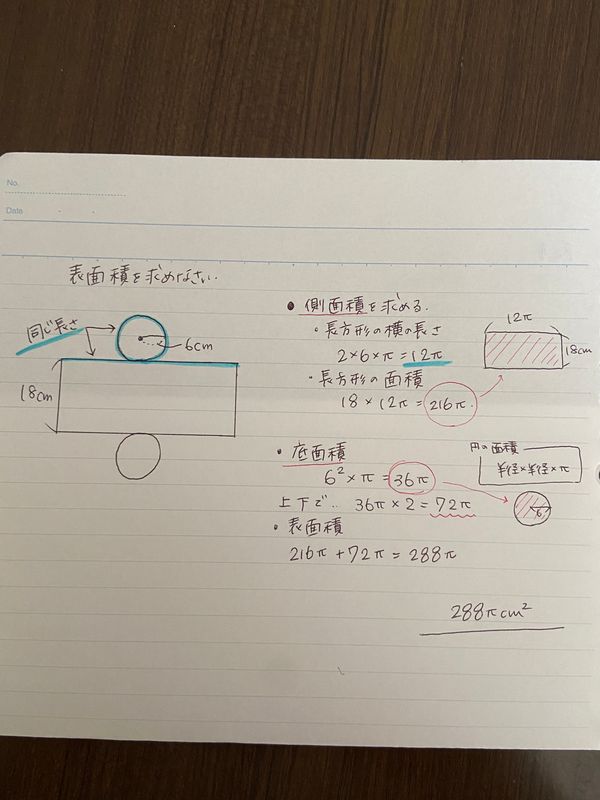 No.
Date
表面積を求めなさい.
同じ長さ
6cm
18cm
● 側面積を求める.
・長方形の横の長さ
2×6×π=12π
・長方形の面積
18×12π=216π.
12π
18cm
・底面積
6²×π=36π
上下で‥ 36π×2=72π
円の面積
半径×半径×π
6
・表面積
216π+72π=288π
288πcm²